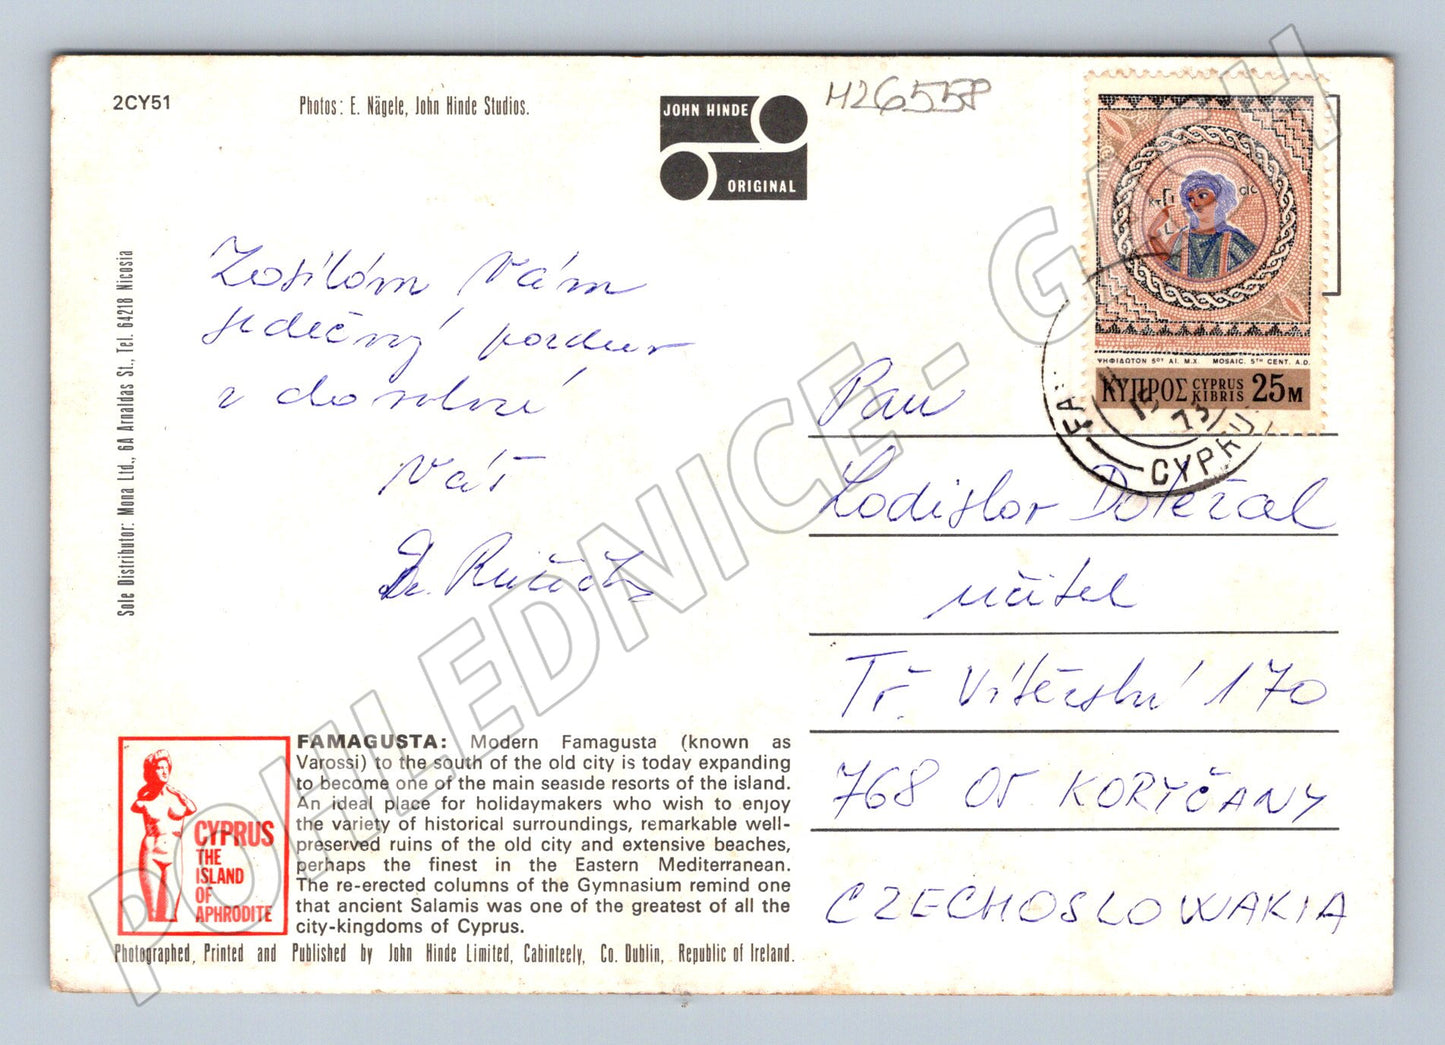 2CY51
Photos: E. Nägele, John Hinde Studios.
JOHN HINDE
ORIGINAL
H26558
Sole Distributor: Mona Ltd., 6A Arnaldas St., Tel. 64218 Nicosia
Zasílám Vám
srdečný pozdrav
z dovolené
Váš
Dr.
ΨΗΦΙΔΩΤΟΝ 5ΟΥ ΑΙ. Μ.Χ. MOSAIC. 5TH CENT. A.D.
ΚΥΠΡΟΣ CYPRUS KIBRIS 25M
CYPRUS
73
Pan
Ladislav Doležal
učitel
Tř. Vítězství 170
768 05 KORYČANY
CZECHOSLOWAKIA
CYPRUS
THE
ISLAND
OF
APHRODITE
FAMAGUSTA: Modern Famagusta (known as
Varossi) to the south of the old city is today expanding
to become one of the main seaside resorts of the island.
An ideal place for holidaymakers who wish to enjoy
the variety of historical surroundings, remarkable well-
preserved ruins of the old city and extensive beaches,
perhaps the finest in the Eastern Mediterranean.
The re-erected columns of the Gymnasium remind one
that ancient Salamis was one of the greatest of all the
city-kingdoms of Cyprus.
Photographed, Printed and Published by John Hinde Limited, Cabinteely, Co. Dublin, Republic of Ireland.